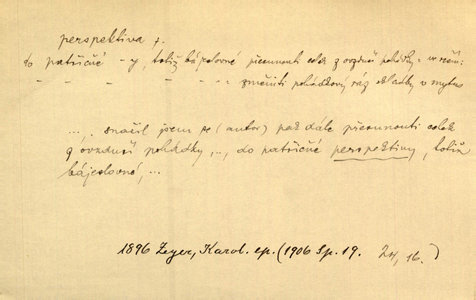 perspektiva f.
do patřičné -y, totiž bájeslovné přesunouti celek z ovzduší pohádky - v něm:
- - - - - - - změniti pohádkový ráz skladby v mytus
..., snažil jsem se (autor) pak dále přesunouti celek
z ovzduší pohádky, ..., do patřičné perspektivy, totiž
bájeslovné, ...
1896 Zeyer, Karol. ep. (1906 Sp. 19. 16.)